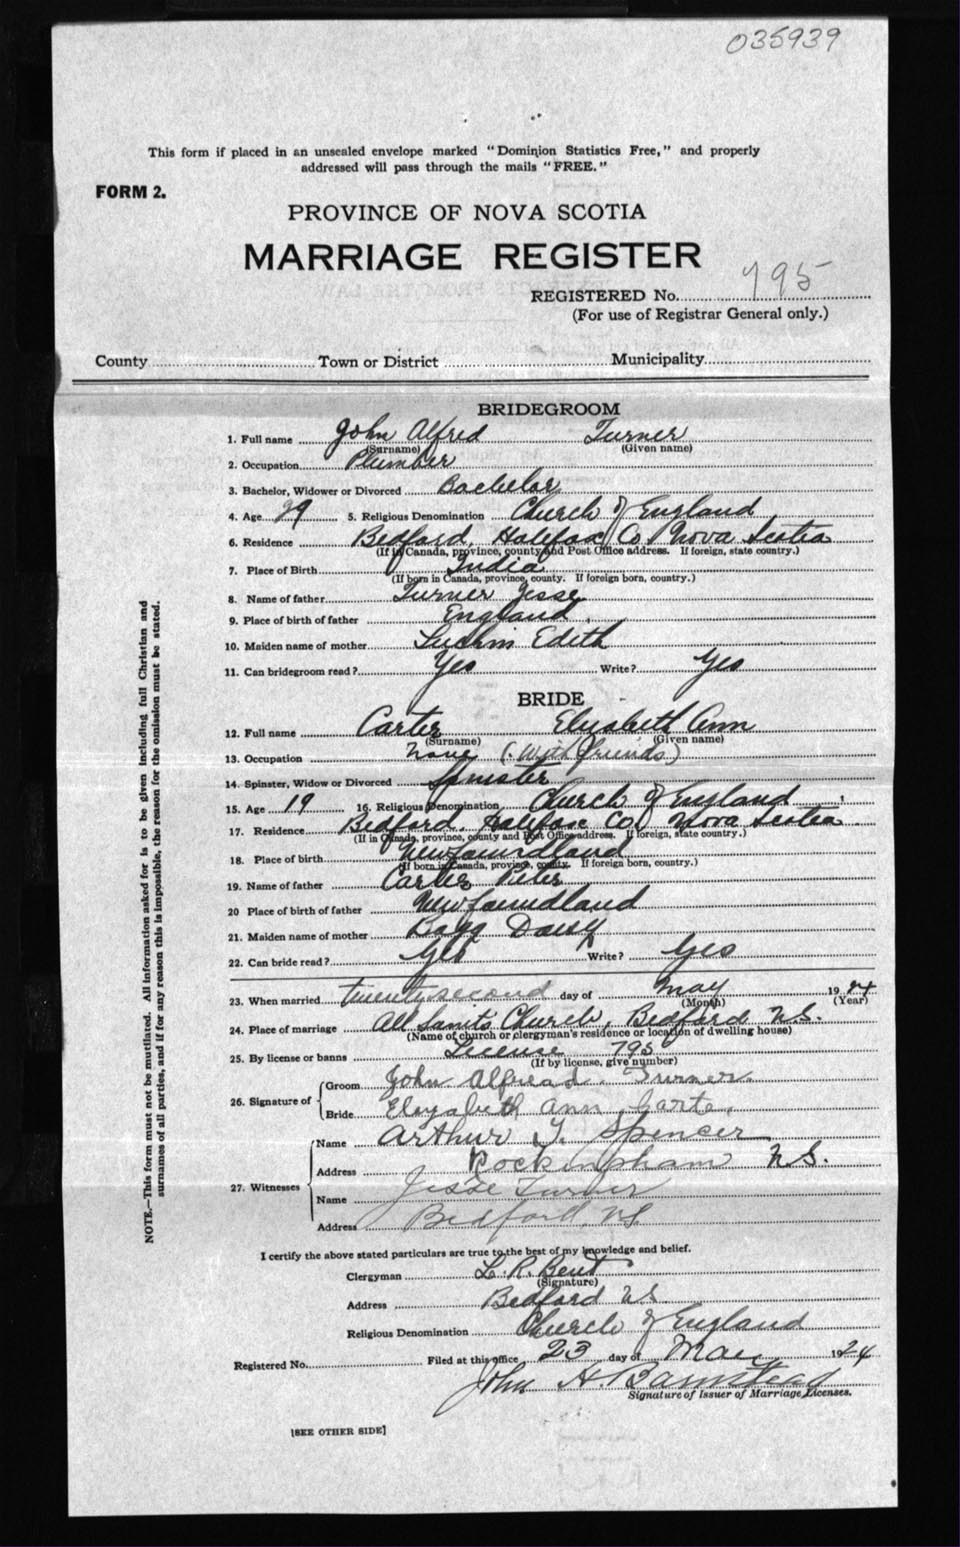 035939
This form if placed in an unsealed envelope marked "Dominion Statistics Free," and properly
addressed will pass through the mails "FREE."
FORM 2.
PROVINCE OF NOVA SCOTIA
MARRIAGE REGISTER
REGISTERED No. 795
(For use of Registrar General only.)
County Town or District Municipality
BRIDEGROOM
1. Full name John Alfred Turner
(Surname) (Given name)
2. Occupation Plumber
3. Bachelor, Widower or Divorced Bachelor
4. Age 29 5. Religious Denomination Church of England
6. Residence Bedford, Halifax Co Nova Scotia
(If in Canada, province, county and Post Office address. If foreign, state country.)
7. Place of Birth India
(If born in Canada, province, county. If foreign born, country.)
8. Name of father Turner Jesse
9. Place of birth of father England
10. Maiden name of mother Edith
11. Can bridegroom read? Yes Write? Yes
BRIDE
12. Full name Carter Elizabeth Ann
(Surname) (Given name)
13. Occupation None (With friends)
14. Spinster, Widow or Divorced Spinster
15. Age 19 16. Religious Denomination Church of England
17. Residence Bedford, Halifax Co Nova Scotia
(If in Canada, province, county and Post Office address. If foreign, state country.)
18. Place of birth Newfoundland
(If born in Canada, province, county. If foreign born, country.)
19. Name of father Carter Peter
20 Place of birth of father Newfoundland
21. Maiden name of mother Daisy
22. Can bride read? Yes Write? Yes
23. When married twenty second day of May 1924
(Month) (Year)
24. Place of marriage All Saints Church, Bedford N.S.
(Name of church or clergyman's residence or location of dwelling house)
25. By license or banns License 795
(If by license, give number)
26. Signature of Groom John Alfread Turner
Bride Elizabeth Ann Carter
27. Witnesses Name Arthur J. Spencer
Address Rockingham N.S.
Name Jesse Turner
Address Bedford, N.S.
I certify the above stated particulars are true to the best of my knowledge and belief.
Clergyman L. R. Bent
(Signature)
Address Bedford N.S.
Religious Denomination Church of England
Registered No. Filed at this office 23 day of May 1924
John H.
Signature of Issuer of Marriage Licenses.
[SEE OTHER SIDE]
NOTE.—This form must not be mutilated. All information asked for is to be given including full Christian and
surnames of all parties, and if for any reason this is impossible, the reason for the omission must be stated.